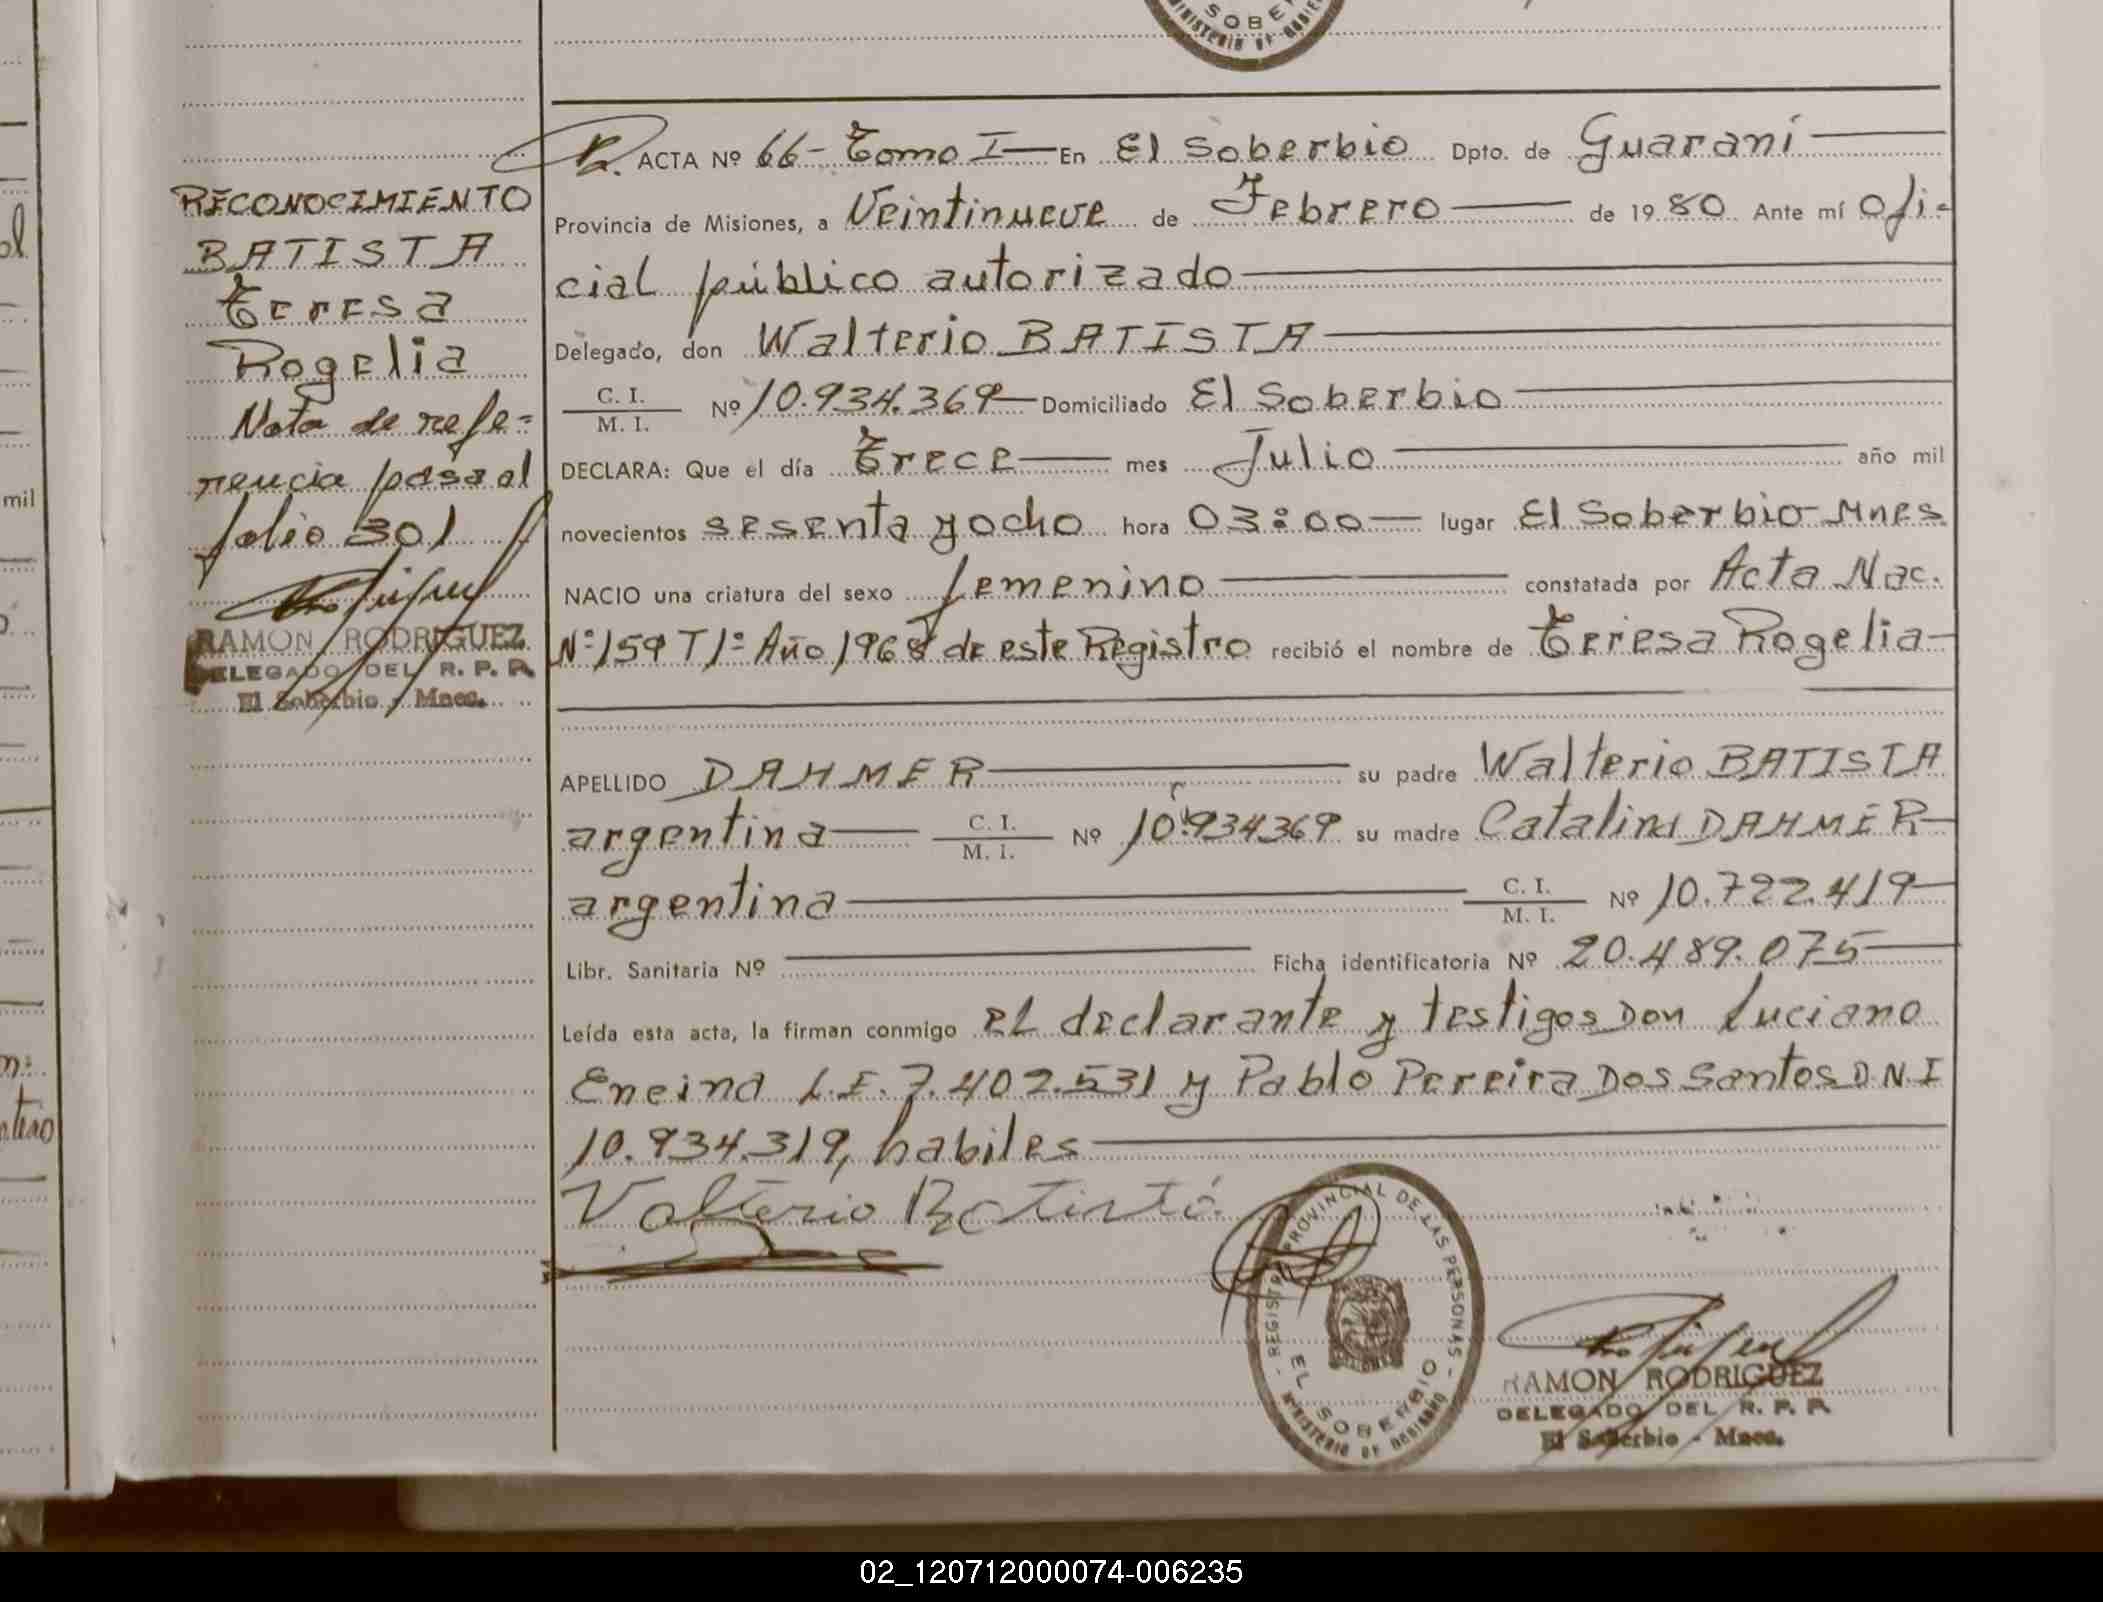 SOBE
MINISTERIO DE GOBIE
RECONOCIMIENTO
BATISTA
Teresa
Rogelia
Nota de refe=
rencia pasa al
folio 301
RAMON RODRIGUEZ
DELEGADO DEL R. P. P.
El Soberbio - Mnes.
R. ACTA Nº 66- Tomo I — En El Soberbio Dpto. de Guaraní
Provincia de Misiones, a Veintinueve de Febrero de 19 80 Ante mí Ofi-
cial público autorizado
Delegado, don Walterio BATISTA
C. I.
M. I. Nº 10.934.369 Domiciliado El Soberbio
DECLARA: Que el día Trece mes Julio año mil
novecientos sesenta y ocho hora 03:00 lugar El Soberbio-Mnes
NACIO una criatura del sexo femenino constatada por Acta Nac.
Nº 159 T1º Año 1968 de este Registro recibió el nombre de Teresa Rogelia
APELLIDO DAHMER su padre Walterio BATISTA
argentina C. I.
M. I. Nº 10.934369 su madre Catalina DAHMER
argentina C. I.
M. I. Nº 10.722.419
Libr. Sanitaria Nº Ficha identificatoria Nº 20.489.075
Leída esta acta, la firman conmigo el declarante y testigos Don Luciano
Eneina L.E. 7.402.531 y Pablo Pereira Dos Santos D.N.I
10.934.319, habiles
Valterio Batista
REGISTRO PROVINCIAL DE LAS PERSONAS
EL SOBERBIO
MINISTERIO DE GOBIERNO
RAMON RODRIGUEZ
DELEGADO DEL R. P. P.
El Soberbio - Mnes.
mil
02_120712000074-006235